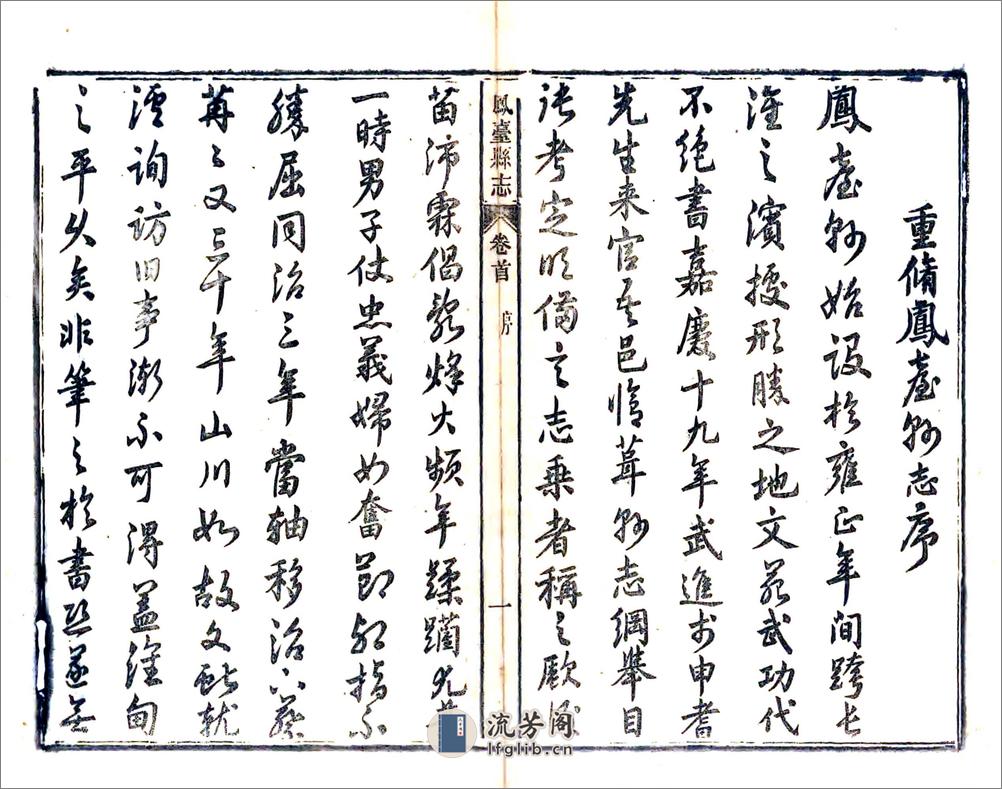 重脩鳳臺縣志序
鳳臺縣始設於雍正年間跨長
淮之濱據形勝之地文苑武功代
不絕書嘉慶十九年武進李申耆
先生来官是邑脩葺縣志綱舉目
張考定明備言志乘者稱之厥後
鳳臺縣志 卷首 序 一
苗沛霖倡亂烽火頻年蹂躪尤甚
一時男子仗忠義婦女奮節烈指不
勝屈同治三年當軸移治下蔡
苒〻又三十年山川如故文獻就
湮詢訪旧事漸不可得蓋淮甸
之平久矣非筆之於書恐遂無
流芳阁
lfglib.cn